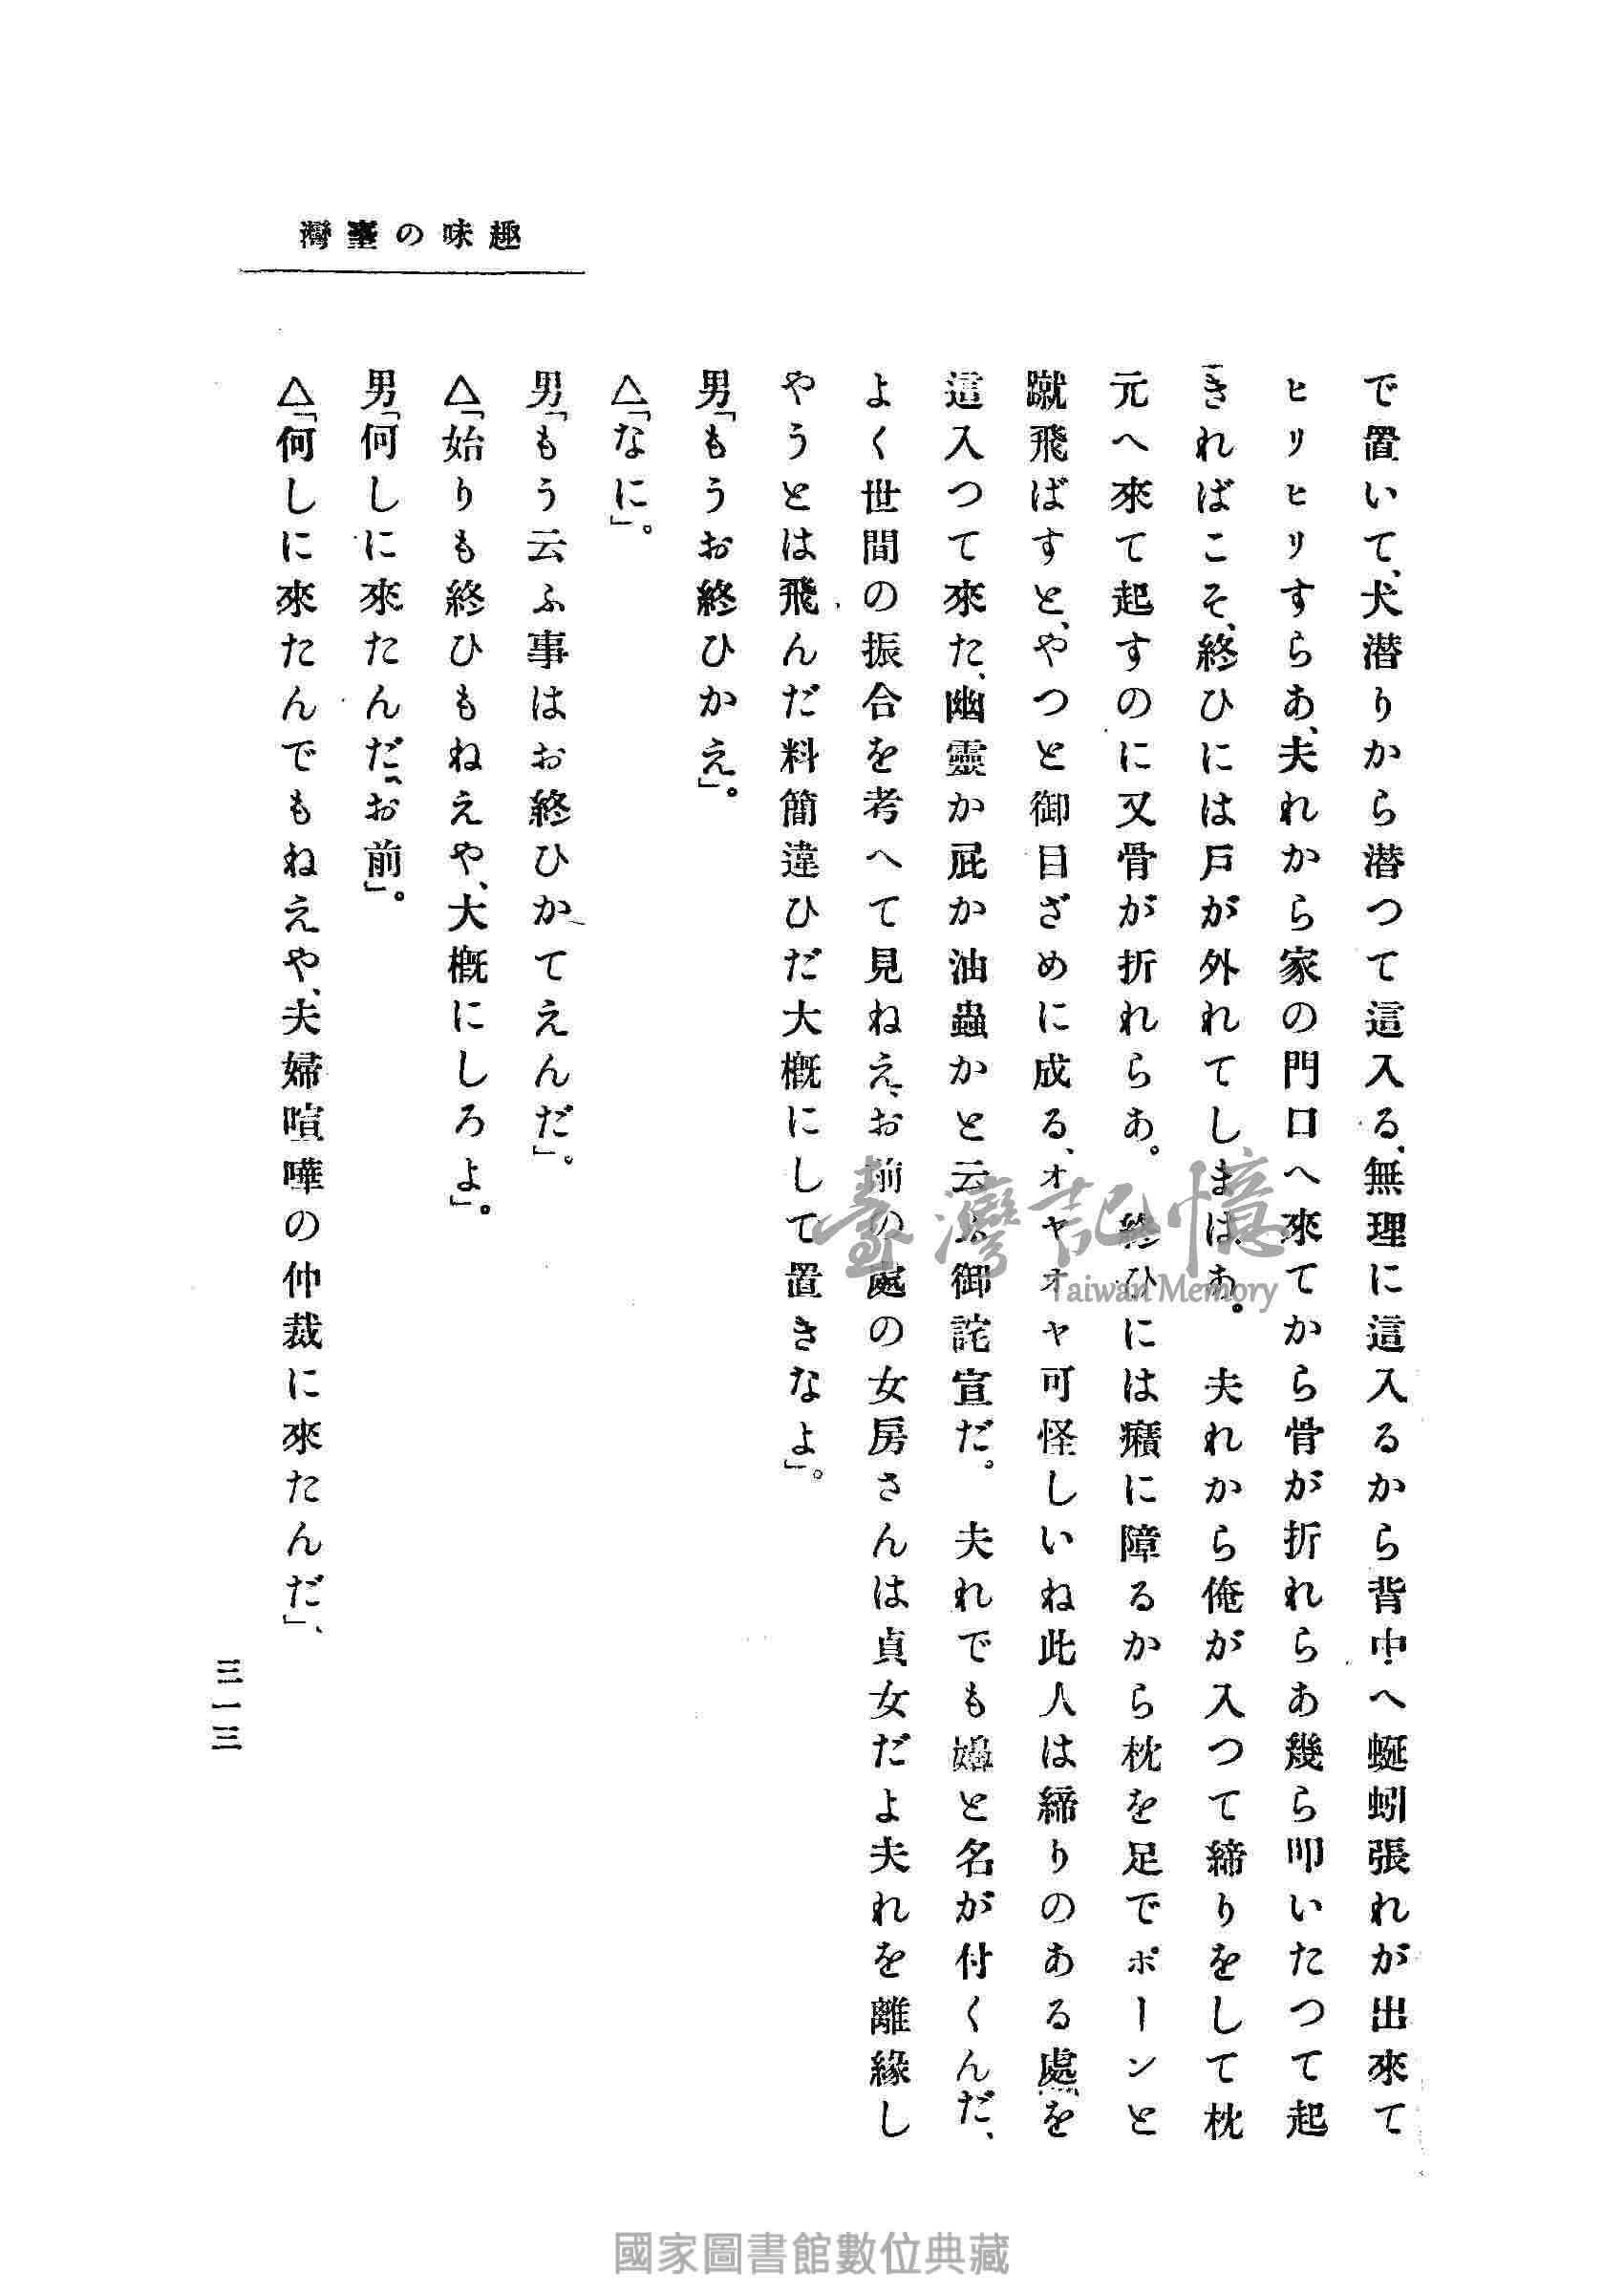 趣味の臺灣
で置いて、犬潜りから潜つて這入る、無理に這入るから背中へ蜒蚓張れが出來て
ヒリヒリすらあ、夫れから家の門口へ來てから骨が折れらあ幾ら叩いたつて起
きればこそ、終ひには戸が外れてしまはあ。 夫れから俺が入つて締りをして枕
元へ來て起すのに又骨が折れらあ。 終ひには癪に障るから枕を足でポーンと
蹴飛ばすと、やつと御目ざめに成る、オヤオヤ可怪しいね此人は締りのある處を
這入つて來た、幽靈か屁か油蟲かと云ふ御詫宣だ。 夫れでも嬶と名が付くんだ、
よく世間の振合を考へて見ねえ、お前の處の女房さんは貞女だよ夫れを離緣し
やうとは飛んだ料簡違ひだ大概にして置きなよ」。
男「もうお終ひかえ」。
△「なに」。
男「もう云ふ事はお終ひかてえんだ」。
△「始りも終ひもねえや、大概にしろよ」。
男「何しに來たんだ、お前」。
△「何しに來たんでもねえや、夫婦喧嘩の仲裁に來たんだ」、
三一三
臺灣記憶
Taiwan Memory
國家圖書館數位典藏